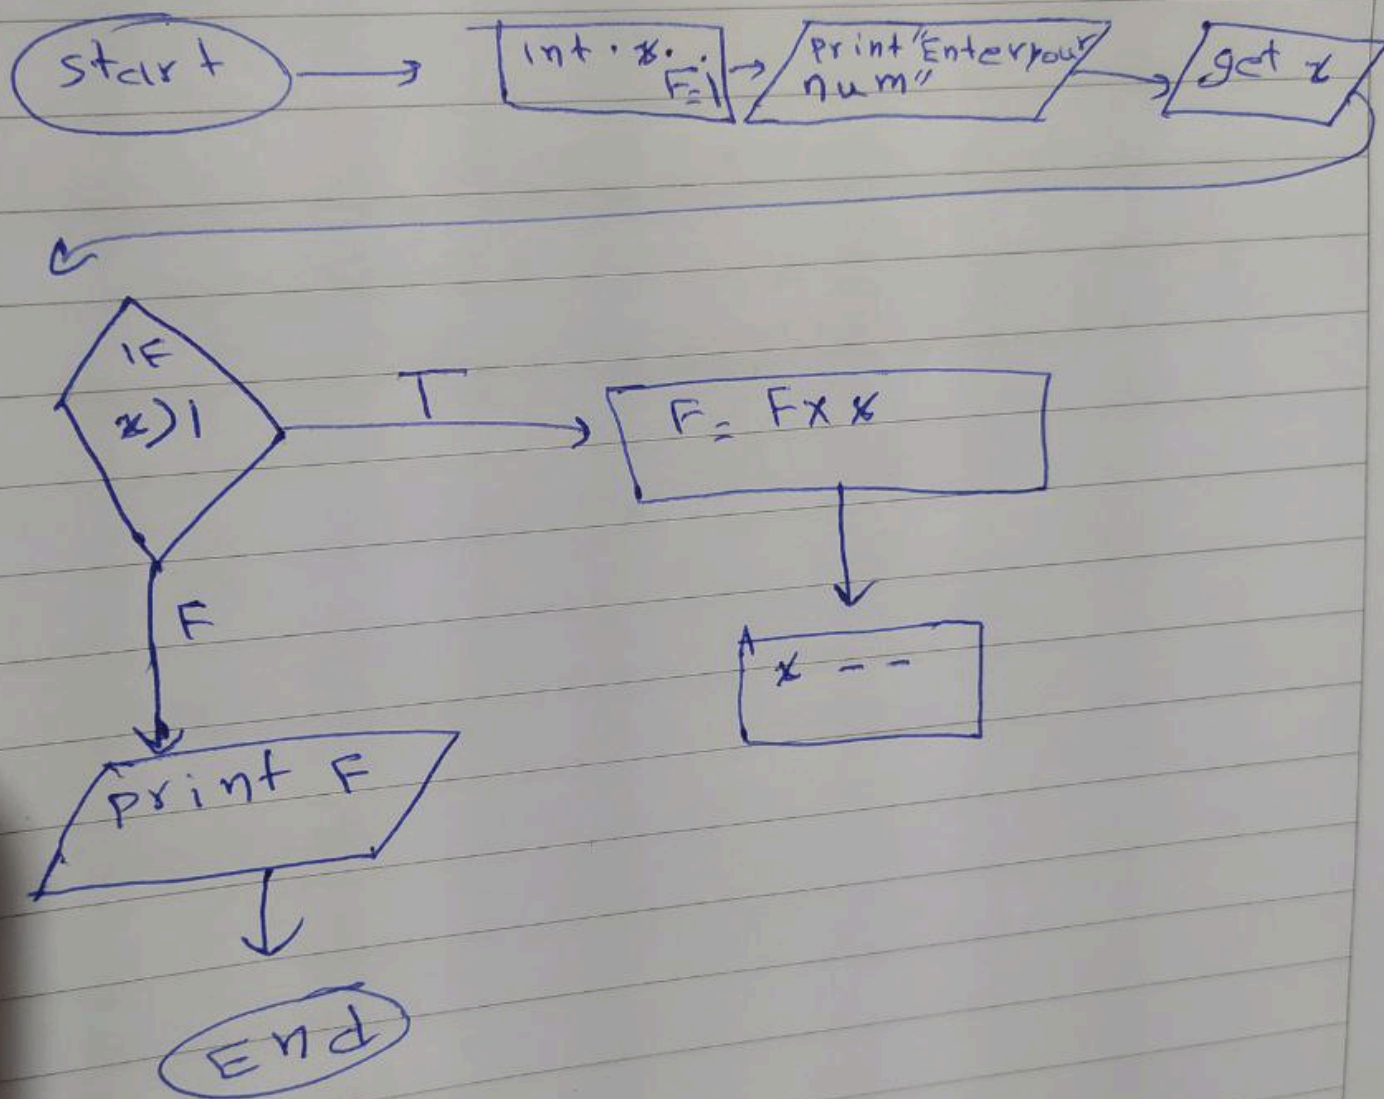 start
int . x . .
F=1
print "Enter your
num"
get x
IF
x>1
T
F = F x x
x --
F
print F
End